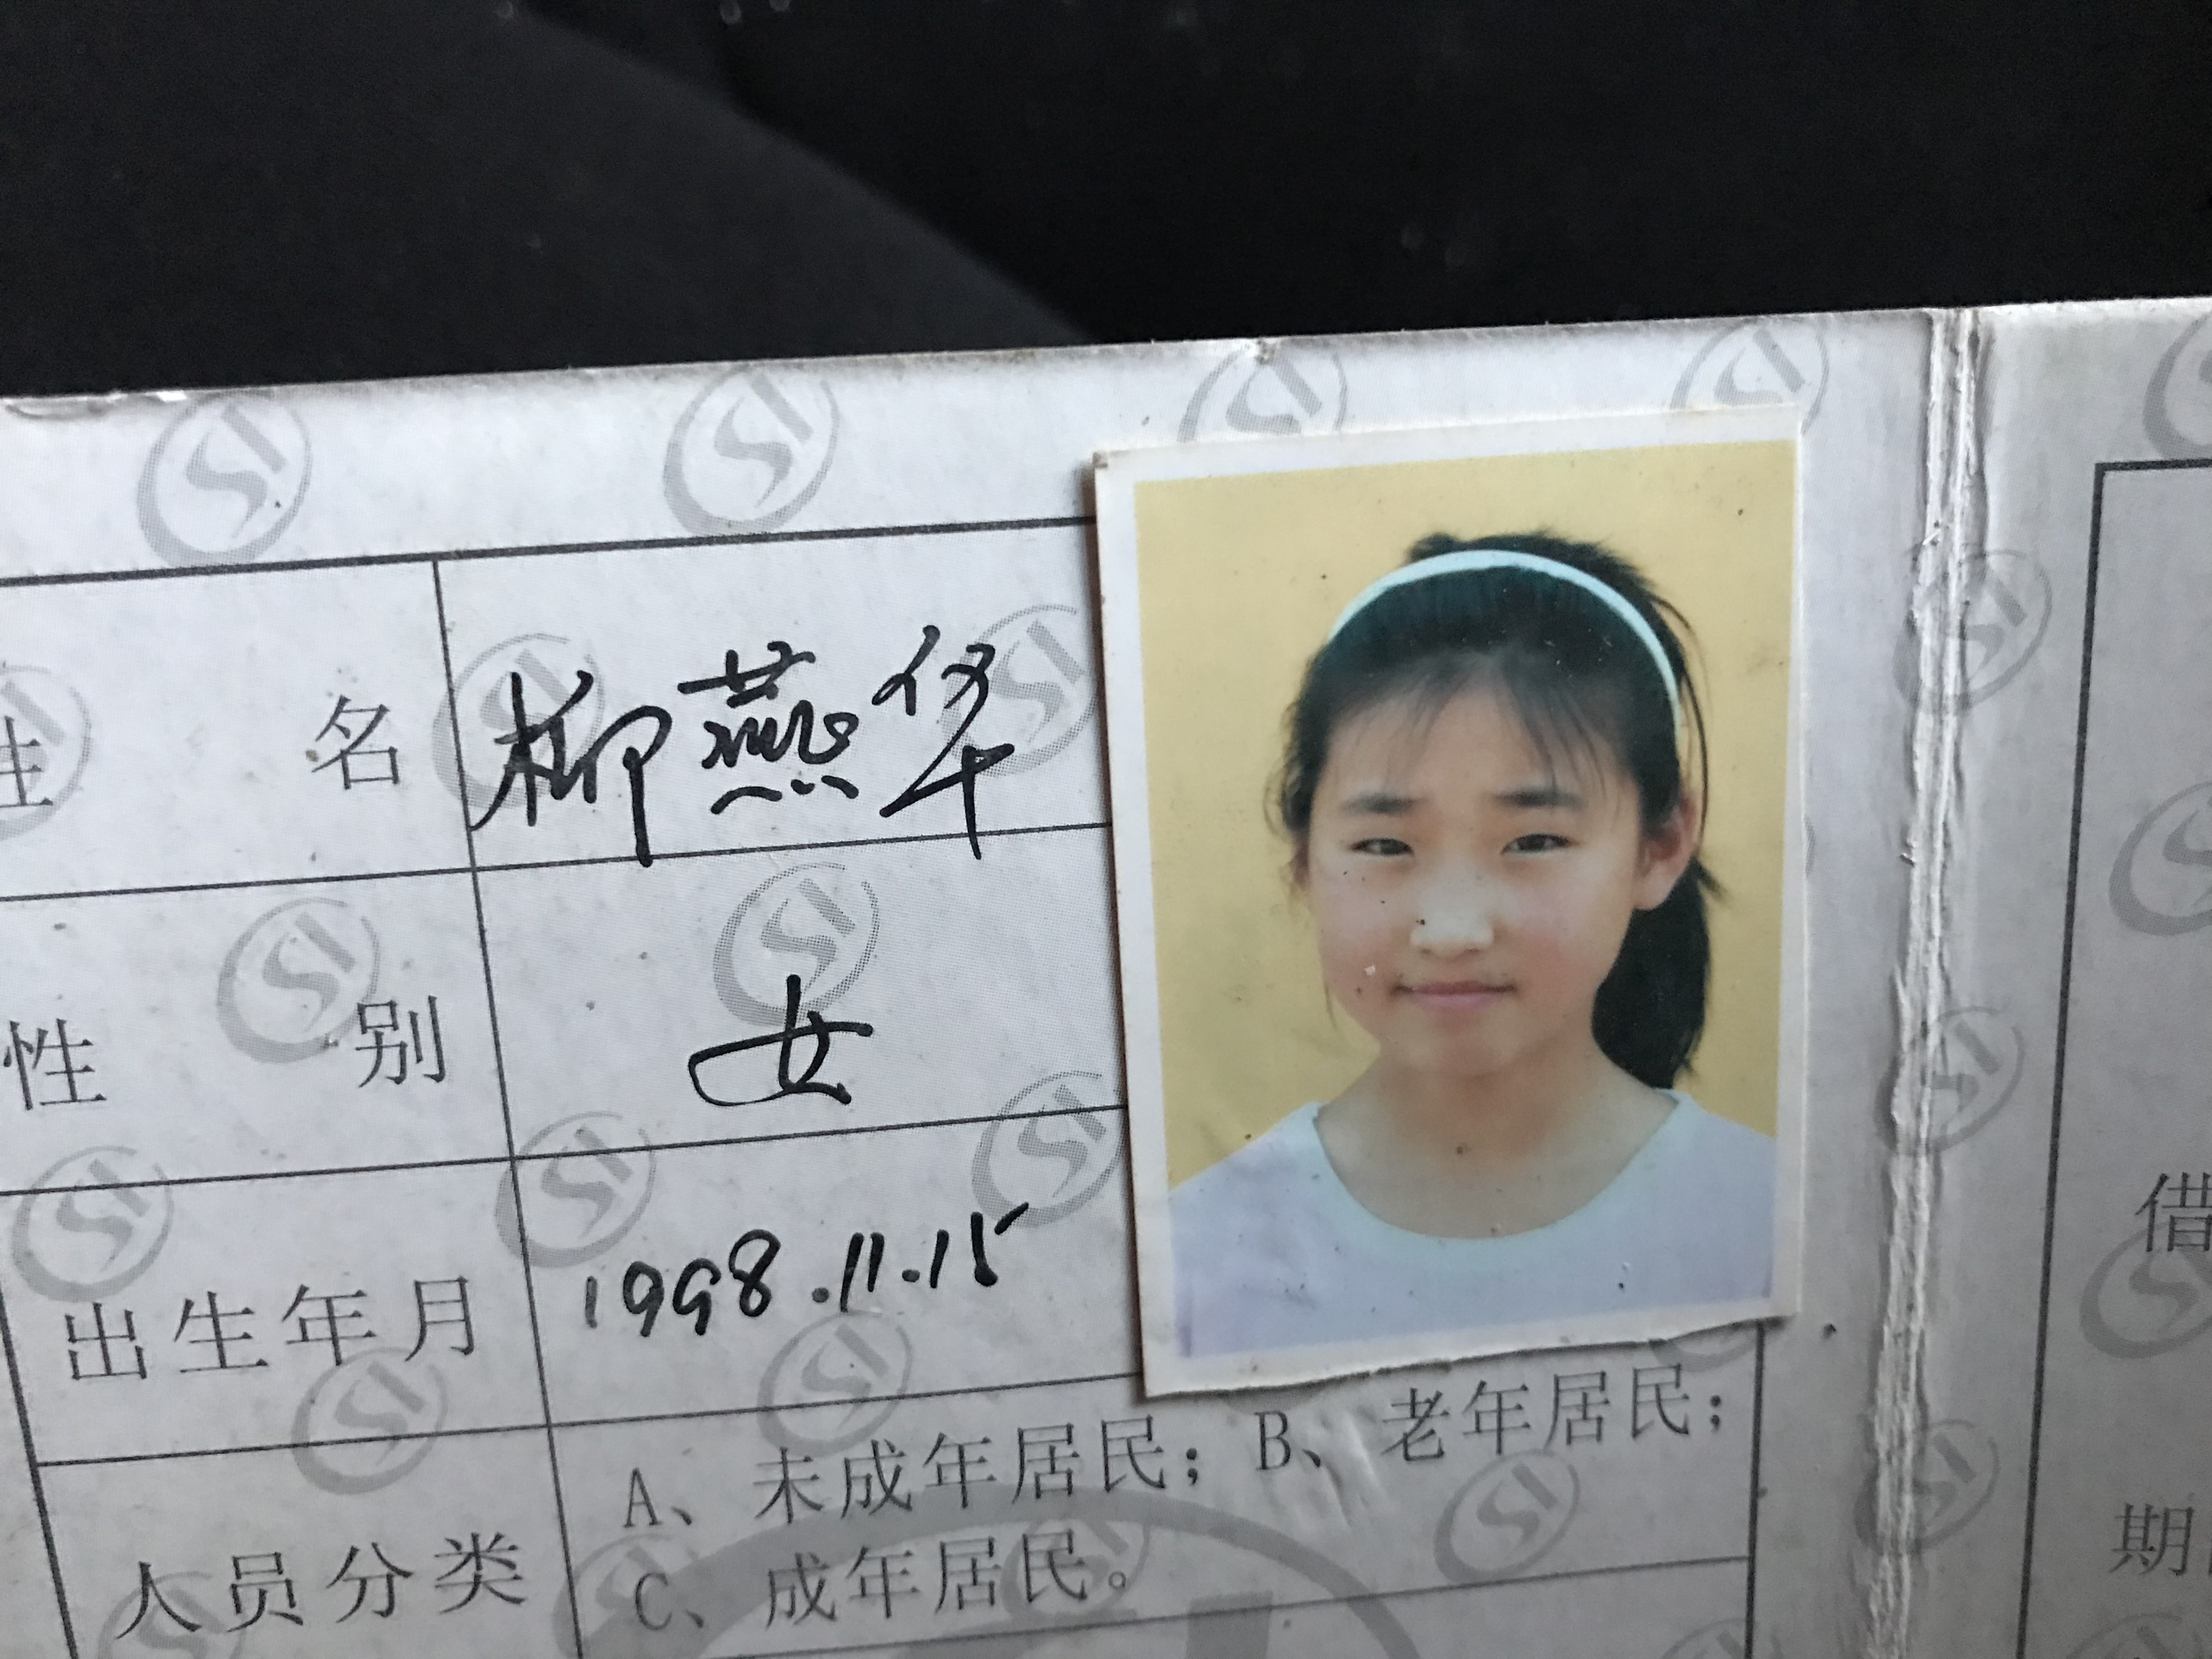 姓名 柳燕华
性别 女
出生年月 1998.11.15
人员分类 A、未成年居民；B、老年居民；
C、成年居民。
借
期
SI